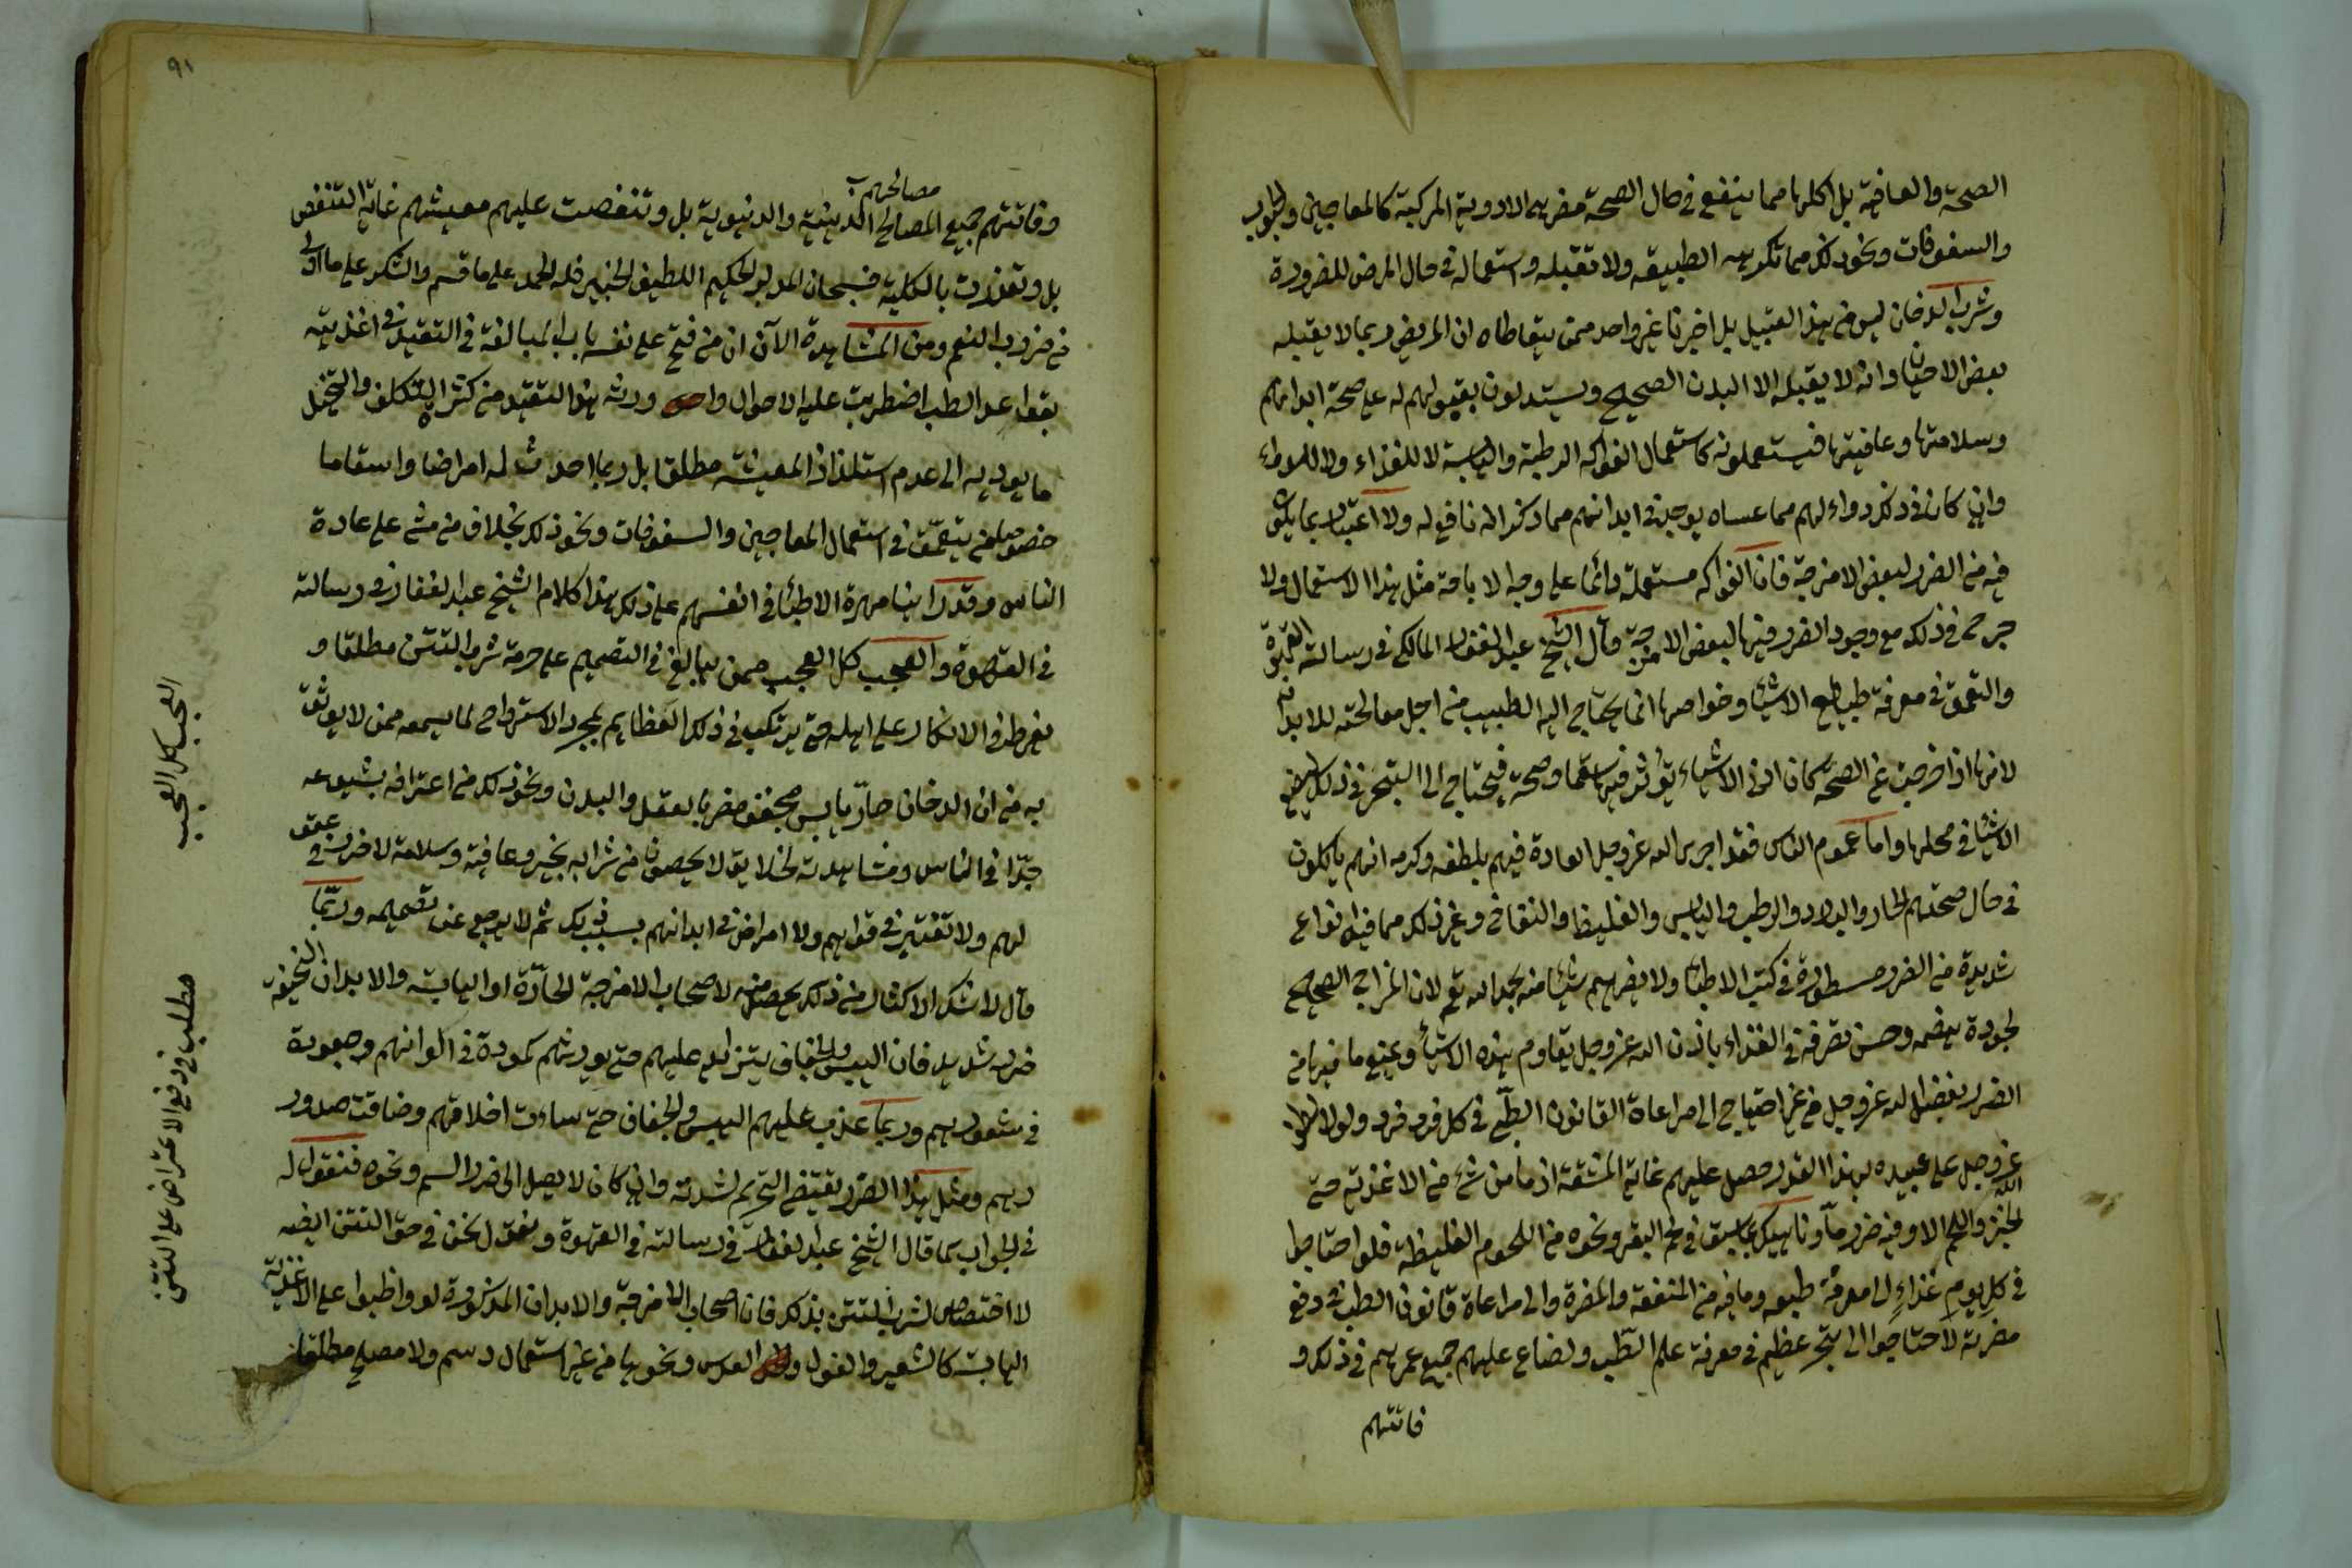 الصحة والعافية بل اكلها مما ينفع في حال الصحة مضر بهم الادوية المركبة كالمعاجين والحبوب
والسفوفات ونحو ذلك مما تكرهه الطبيعة ولا تقبله واستعماله في حال المرض للضرورة
وشرب الدخان ليس من هذا القبيل بل اخبرنا غير واحد ممن يتعاطاه ان المريض ربما لا يقبله
بعض الاحيان وانه لا يقبله الا البدن الصحيح ويستدلون بقبولهم له على صحة ابدانهم
وسلامتها وعافيتها فيستعملونه كاستعمال الفواكه الرطبة واليابسة لا للغذاء ولا للدواء
وان كان في ذلك دواء لهم مما عساه يوجد في ابدانهم مما ذكر انه نافع له ولا اعتبار بما
فيه من الضرر لبعض الامزجة فان الفواكه مستعملة دائما على وجه الاباحة مثل هذا الاستعمال ولا
حرج في ذلك مع وجود الضرر فيها لبعض الامزجة قال الشيخ عبد الغفار المالكي في رسالته القهوة
والتعمق في معرفة طبايع الاشياء وخواصها انما يحتاج اليه الطبيب من اجل معالجته للابدان
لانها اذا خرجت عن الصحة كان ادنى الاشياء يؤثر فيها سقما وصحة فيحتاج الى التبحر في ذلك
الاشياء في محلها واما عموم الناس فقد اجرى الله عز وجل العادة فيهم بلطفه وكرمه انهم ياكلون
في حال صحتهم الحار والبارد والرطب واليابس والغليظ والنفاخ وغير ذلك مما فيه انواع
شديدة من الضرر مسطورة في كتب الاطباء ولا يضرهم شيئا منه بحمد الله تع لان المزاج الصحيح
لجودة هضمه وحسن تصرفه في الغذاء باذن الله عز وجل يقاوم هذه الاشياء ويمنع ما فيها من
الضرر بفضل الله عز وجل من غير احتياج الى مراعاة القانون الطبي في كل فرد فرد ولولا
الله عز وجل على عبيده بهذا القدر حصل عليهم غاية المشقة اذ ما من شئ من الاغذية حتى
الخبز واللحم الا وفيه ضرر ما وناهيك بما سبق في لحم البقر ونحوه من اللحوم الغليظة فلو احتاجوا
في كل يوم غذاء الى معرفة طبعه وما فيه من المنفعة والمضرة والى مراعاة قانون الطب في دفع
مضرته لاحتاجوا الى تبحر عظيم في معرفة علم الطب ولضاع عليهم جميع عمرهم في ذلك و
فاتتهم
٩١
مصالحهم
وفاتتهم جميع المصالح الدينية والدنيوية بل وتنغصت عليهم معيشتهم غاية التنغص
بل وتعذرت بالكلية فسبحان المدبر الحكيم اللطيف الخبير فله الحمد على ما قسم والشكر على ما
من ضروب النعم ومن المشاهدة الآن ان من فتح على نفسه باب المبالغة في التقيد في اغذيته
بقواعد الطب اضطربت عليه الاحوال وورثه هذا التقيد من كثرة التكلف والتخيل
ما يوديه الى عدم استلذاذ المعيشة مطلقا بل ربما احدث له امراضا واسقاما
خصوصا من يتعمق في استعمال المعاجين والسفوفات ونحو ذلك بخلاف من مشى على عادة
الناس وقد راينا مهرة الاطباء في انفسهم على ذلك هذا كلام الشيخ عبد الغفار في رسالته
في القهوة والعجب كل العجب ممن يبالغ في التصميم على حرمة شرب التتن مطلقا و
يفرط في الانكار على اهله حتى يرتكب في ذلك العظايم بمجرد الاسترواح لما يسمعه ممن لا يوثق
به من ان الدخان حار يابس مجفف مضر بالعقل والبدن ونحو ذلك من اعترافه بشيوعه
جدا في الناس ومشاهدته لخلايق لا يحصون من شرابه بخير وعافية وسلامة لا ضرر في عقو
لهم ولا تغيير في قواهم ولا امراض في ابدانهم بسبب ذلك ثم لا يرجع عن تصميمه وربما
قال لا شك ان الاكثار من ذلك يحصل منه لاصحاب الامزجة الحارة او اليابسة والابدان النحيفة
ضرر شديد فان اليبس والجفاف يتزايد عليهم حتى يورثهم كمودة في الوانهم وجعودة
في شعورهم وربما غلب عليهم اليبس والجفاف حتى ساءت اخلاقهم وضاقت صدور
رهم ومثل هذا الضرر يقتضي التحريم لشدته وان كان لا يصل الى ضرر السم ونحوه فنقول له
في الجواب كما قال الشيخ عبد الغفار في رسالته في القهوة ونقول نحن في حق التتن ايضا
لا اختصاص لشرب التتن بذلك فان اصحاب الامزجة والابدان المذكورة لو واظبوا على الاغذية
اليابسة كالشعير والفول والعدس ونحوها من غير استعمال دسم ولا مصلح مطلقا
العجب كل العجب
مطلب في دفع الاعتراض على التتن